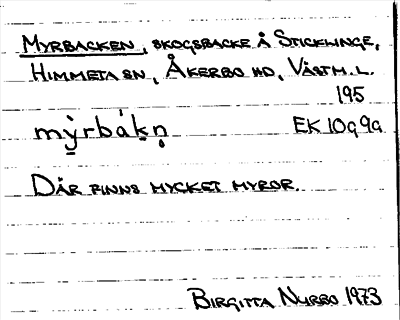 MYRBACKEN, SKOGSBACKE Å STICKLINGE,
HIMMETA SN, ÅKERBO HD, VÄSTM. L.
195
mỳ̱rbák̬n̥ EK 10G 9a
DÄR FINNS MYCKET MYROR.
BIRGITTA NYRBO 1973